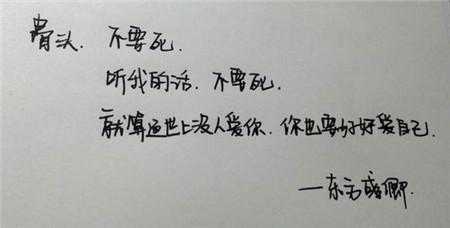 骨头．不要死．
听我的话．不要死．
就算这世上没人爱你．你也要好好爱自己．
——东方盛卿．